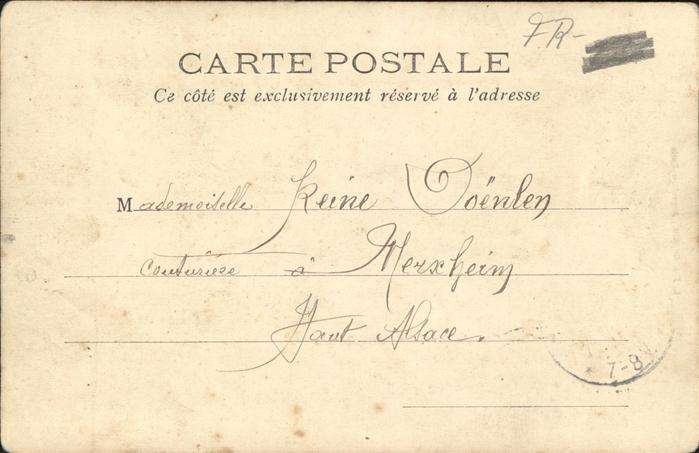 FR-
CARTE POSTALE
Ce côté est exclusivement réservé à l'adresse
Mademoiselle Reine Doënlen
couturière à Merxheim
Haut Alsace.
7-8